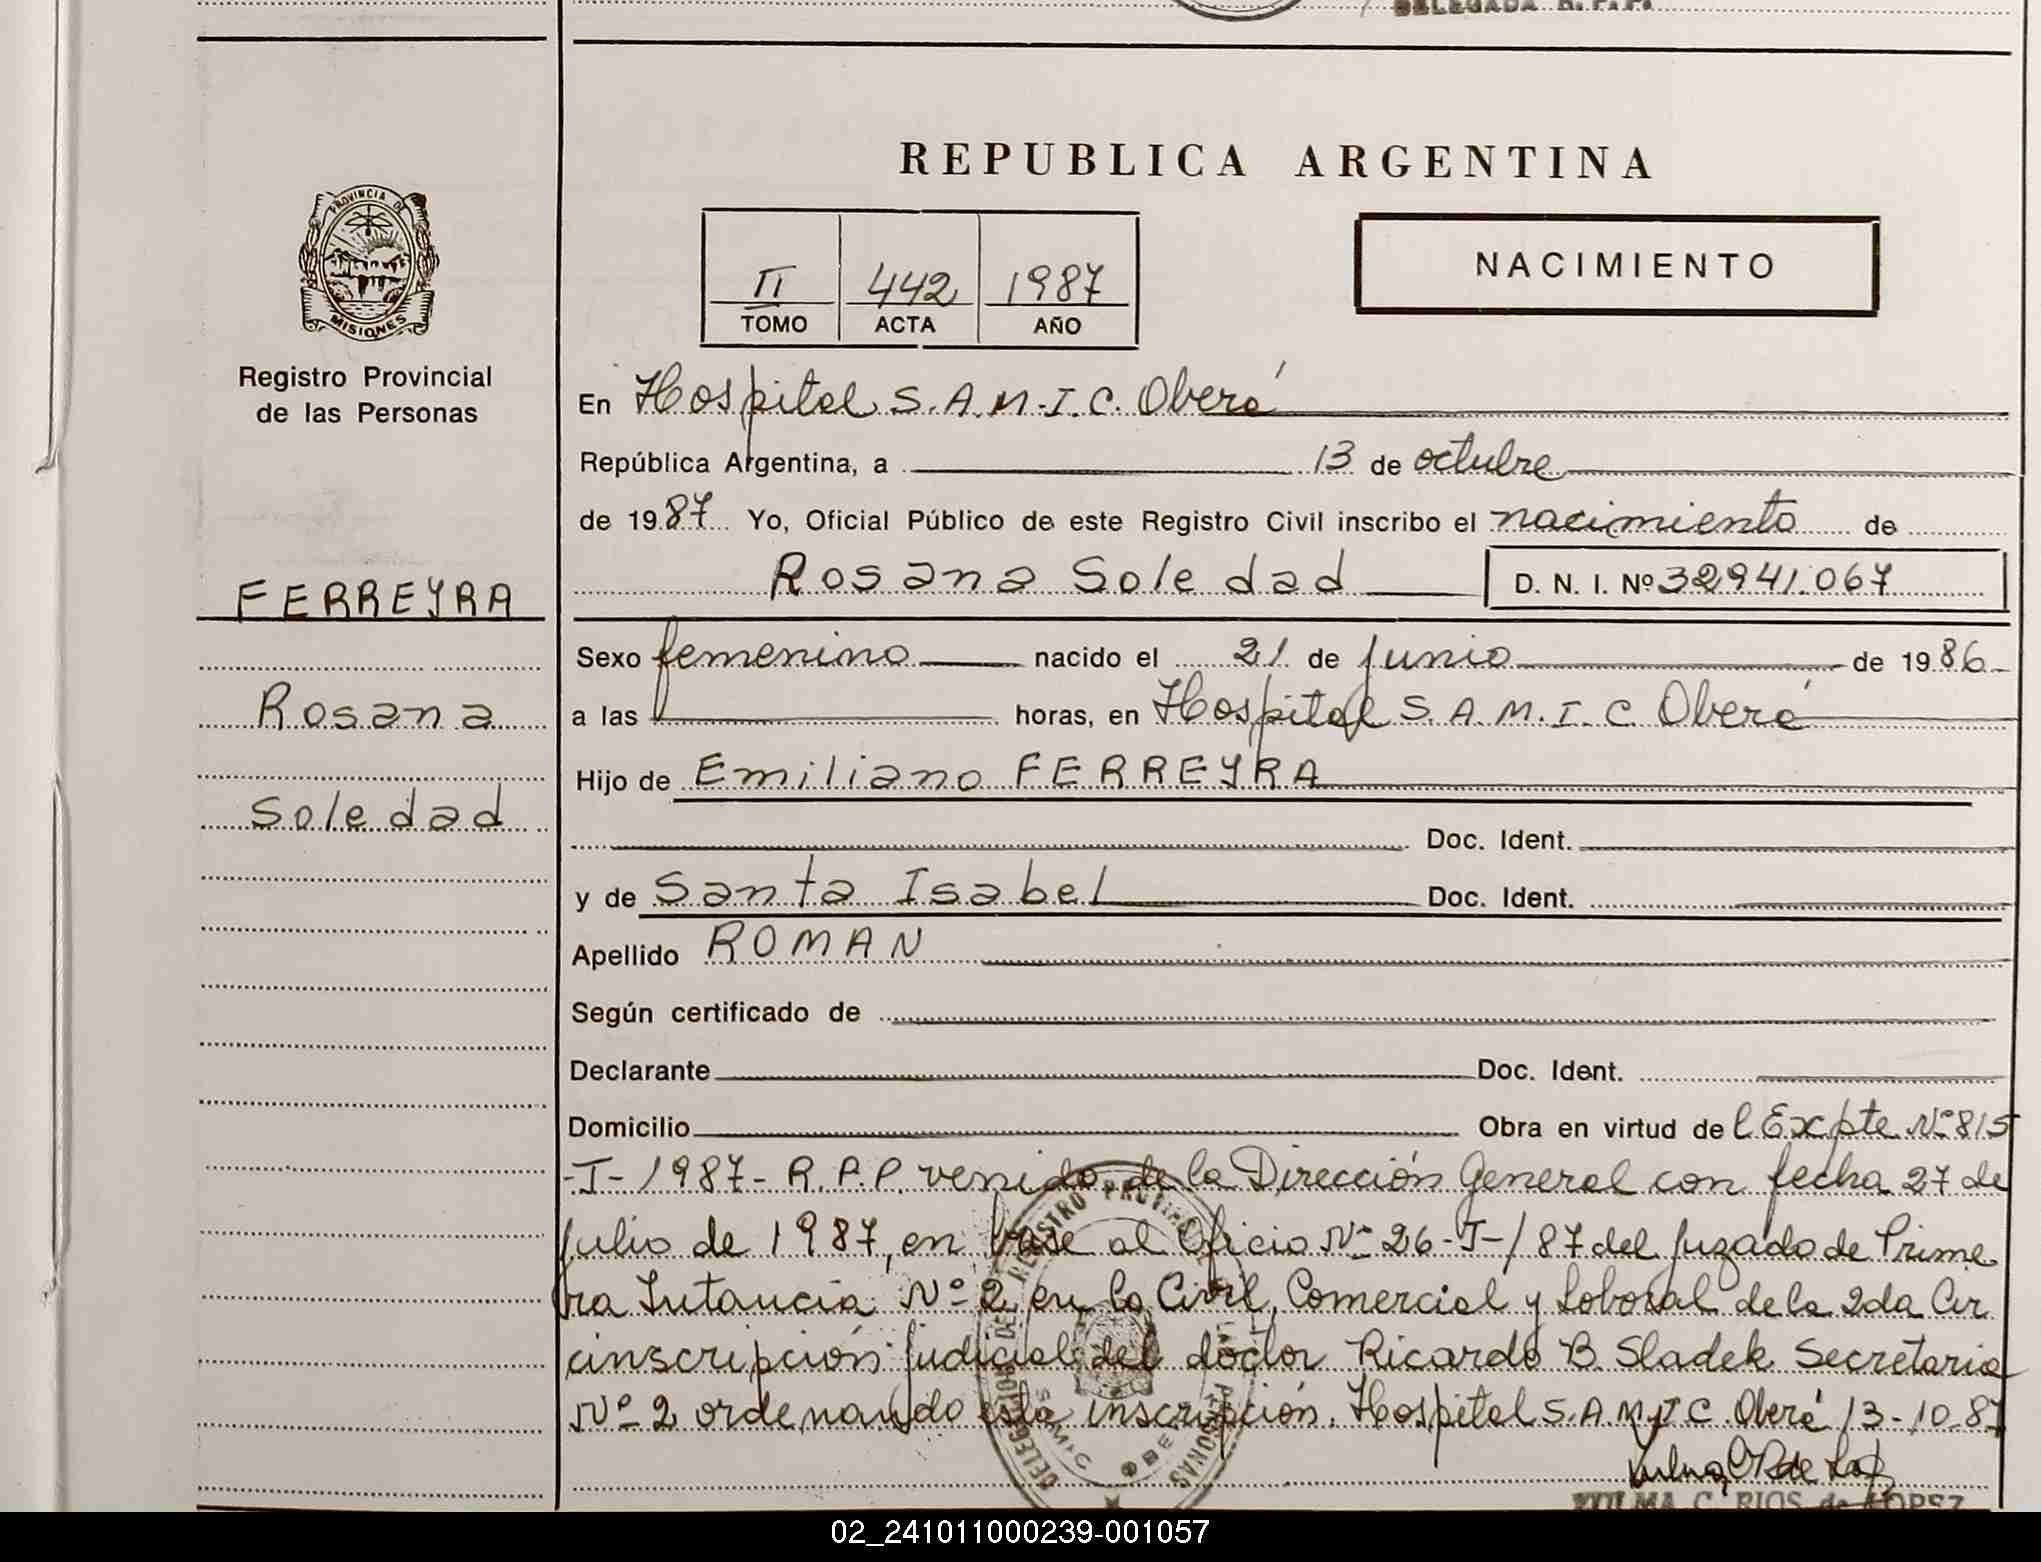 DELEGADA R.P.P.
REPUBLICA ARGENTINA
PROVINCIA DE
MISIONES
Registro Provincial
de las Personas
II 442 1987
TOMO ACTA AÑO
NACIMIENTO
FERREYRA
Rosana
Soledad
En Hospital S.A.M.I.C. Oberá
República Argentina, a 13 de octubre
de 1987 Yo, Oficial Público de este Registro Civil inscribo el nacimiento de
Rosana Soledad D. N. I. Nº 32941.067
Sexo femenino nacido el 21 de junio de 1986
a las horas, en Hospital S.A.M.I.C Oberá
Hijo de Emiliano FERREYRA
Doc. Ident.
y de Santa Isabel Doc. Ident.
Apellido ROMAN
Según certificado de
Declarante Doc. Ident.
Domicilio Obra en virtud del Expte Nº 815
-I-1987- R.P.P. venido de la Dirección General con fecha 27 de
julio de 1987, en base al Oficio Nº 26-J-/87 del juzgado de Prime
ra Intancia Nº 2 en lo Civil, Comercial y Laboral de la 2da Cir
cinscripción judicial del doctor Ricardo B. Sladek Secretaria
Nº 2 ordenando esta inscripción. Hospital S.A.M.I.C. Oberá 13-10-87
VILMA C. RIOS de LOPEZ
02_241011000239-001057